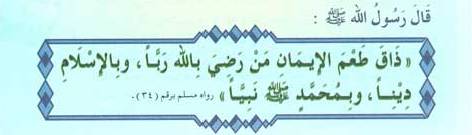 قَالَ رَسُولُ اللَّهِ ﷺ :
« ذَاقَ طَعْمَ الإِيمَانِ مَنْ رَضِيَ بِاللهِ رَبّاً ، وبِالإِسْلَامِ
دِيْنِـاً ، وبِـمُحَمَّدٍ ﷺ نَبِيَّاً » رواه مسلم برقم (٣٤).